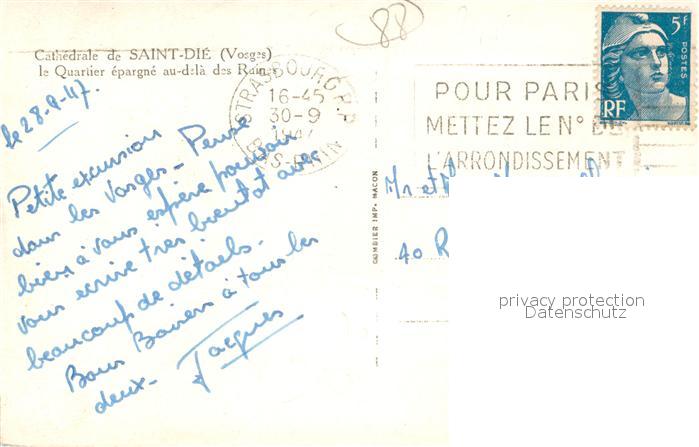 (88)
Cathédrale de SAINT-DIÉ (Vosges)
le Quartier épargné au-delà des Ruines
STRASBOURG R.P.
16-45
30-9
1947
BAS-RHIN
POUR PARIS
METTEZ LE N° DE
L'ARRONDISSEMENT
5F
POSTES
RF
le 28-9-47.
Petite excursion
dans les Vosges - Pense
bien à vous espère pouvoir
vous ecrire très bientot avec
beaucoup de détails.
Bons Baisers à tous les
deux - Jacques
COMBIER IMP. MACON
Mr et
40 R
privacy protection
Datenschutz